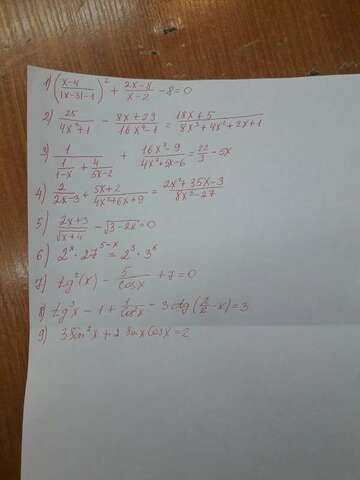 1) ((x-4)/(|x-3|-1))² + (2x-11)/(x-2) - 8 = 0
2) 25/(4x²+1) - (8x+29)/(16x⁴-1) = (18x+5)/(8x³+4x²+2x+1)
3) 1/(1/(1-x) + 4/(5x-2)) + (16x²-9)/(4x²+5x-6) = 22/3 - 5x
4) 2/(2x-3) + (5x+2)/(4x²+6x+9) = (2x²+35x-3)/(8x³-27)
5) (2x+3)/√(x+4) - √(3-2x) = 0
6) 2ˣ · 27^(5-x) = 2³ · 3⁶
7) tg²(x) - 5/cosx + 7 = 0
8) tg³x - 1 + 1/cos²x - 3ctg(π/2 - x) = 3
9) 3sin²x + 2 sinx cosx = 2